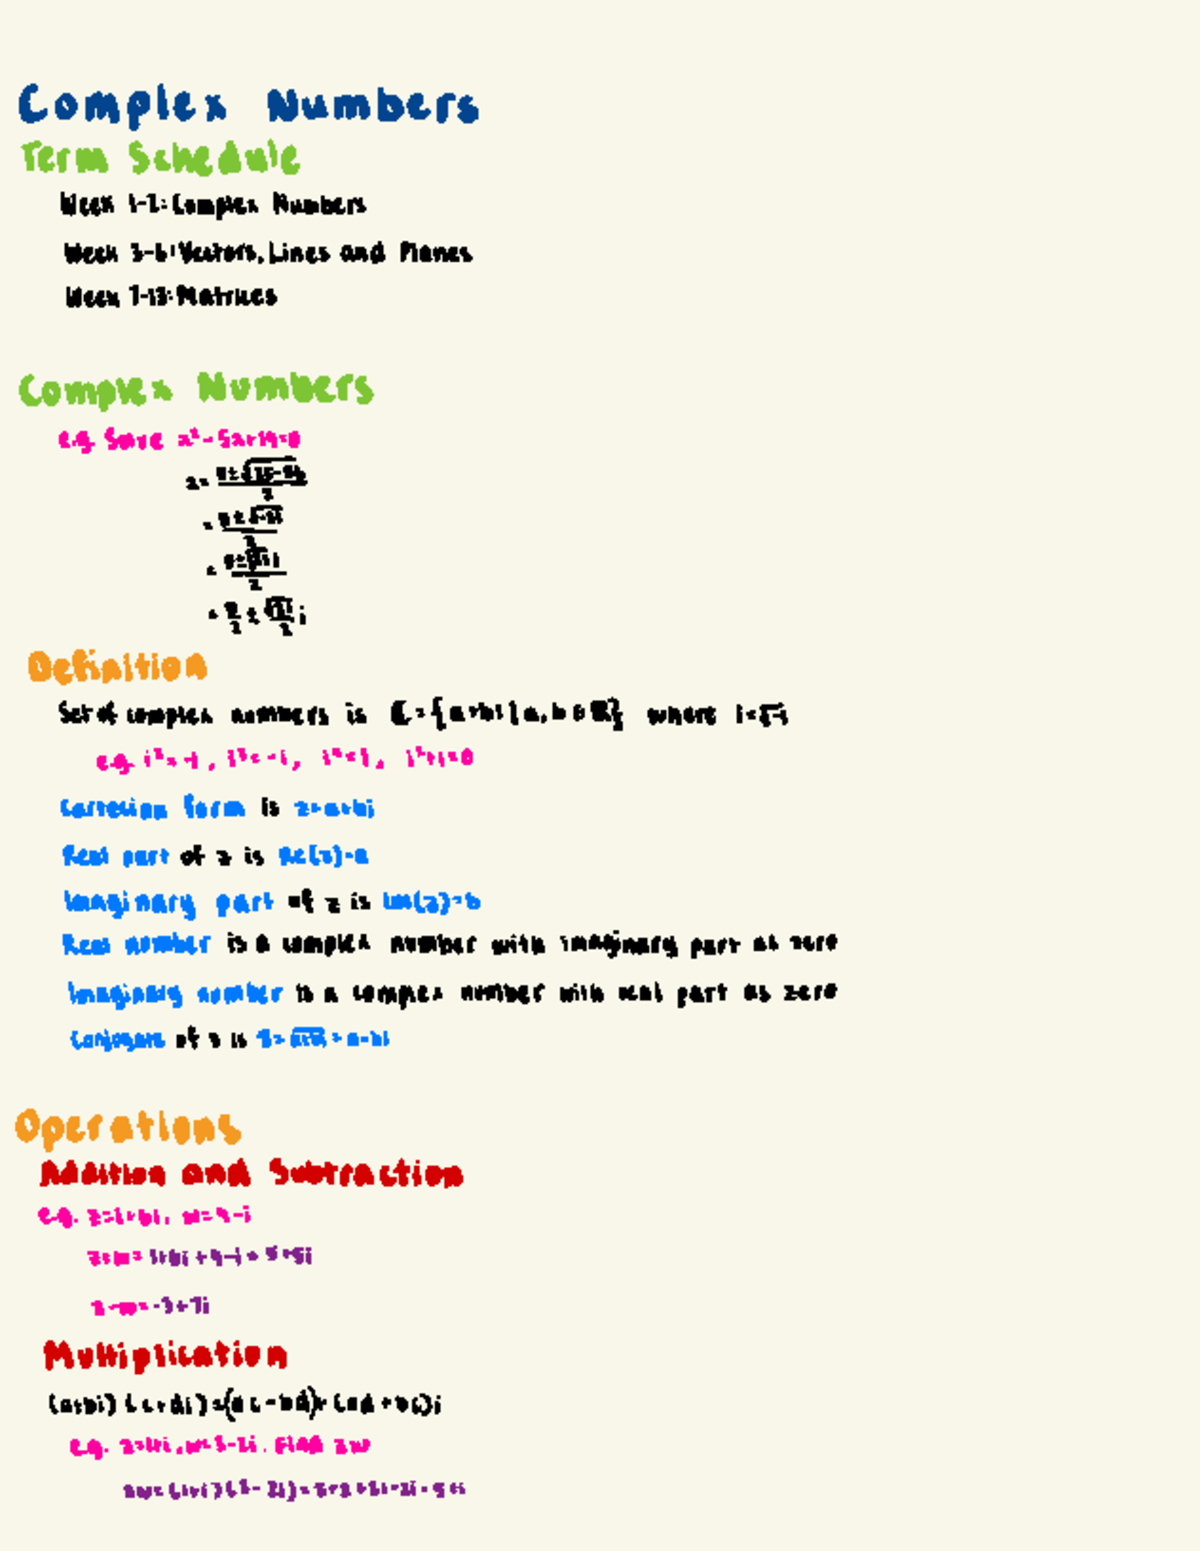 Complex Numbers
Term Schedule
Week 1-2: Complex Numbers
Week 3-6: Vectors, Lines and Planes
Week 7-13: Matrices
Complex Numbers
e.g. Solve x² - 5x + 14 = 0
Definition
Set of complex numbers is ℂ = {a+bi | a, b ∈ ℝ} where i = √-1
e.g. i² = -1, i³ = -i, i⁴ = 1,
Cartesian form is z = a+bi
Real part of z is Re(z) = a
Imaginary part of z is Im(z) = b
Real number is a complex number with imaginary part as zero
Imaginary number is a complex number with real part as zero
Conjugate of z is z̅ = a+bi = a-bi
Operations
Addition and Subtraction
e.g. z = 1+6i, w = 4-i
z+w = 1+6i + 4-i = 5+5i
z-w = -3+7i
Multiplication
(a+bi)(c+di) = (ac-bd) + (ad+bc)i
e.g. z = 1+i, w = 3-2i. Find zw
zw = (1+i)(3-2i) =